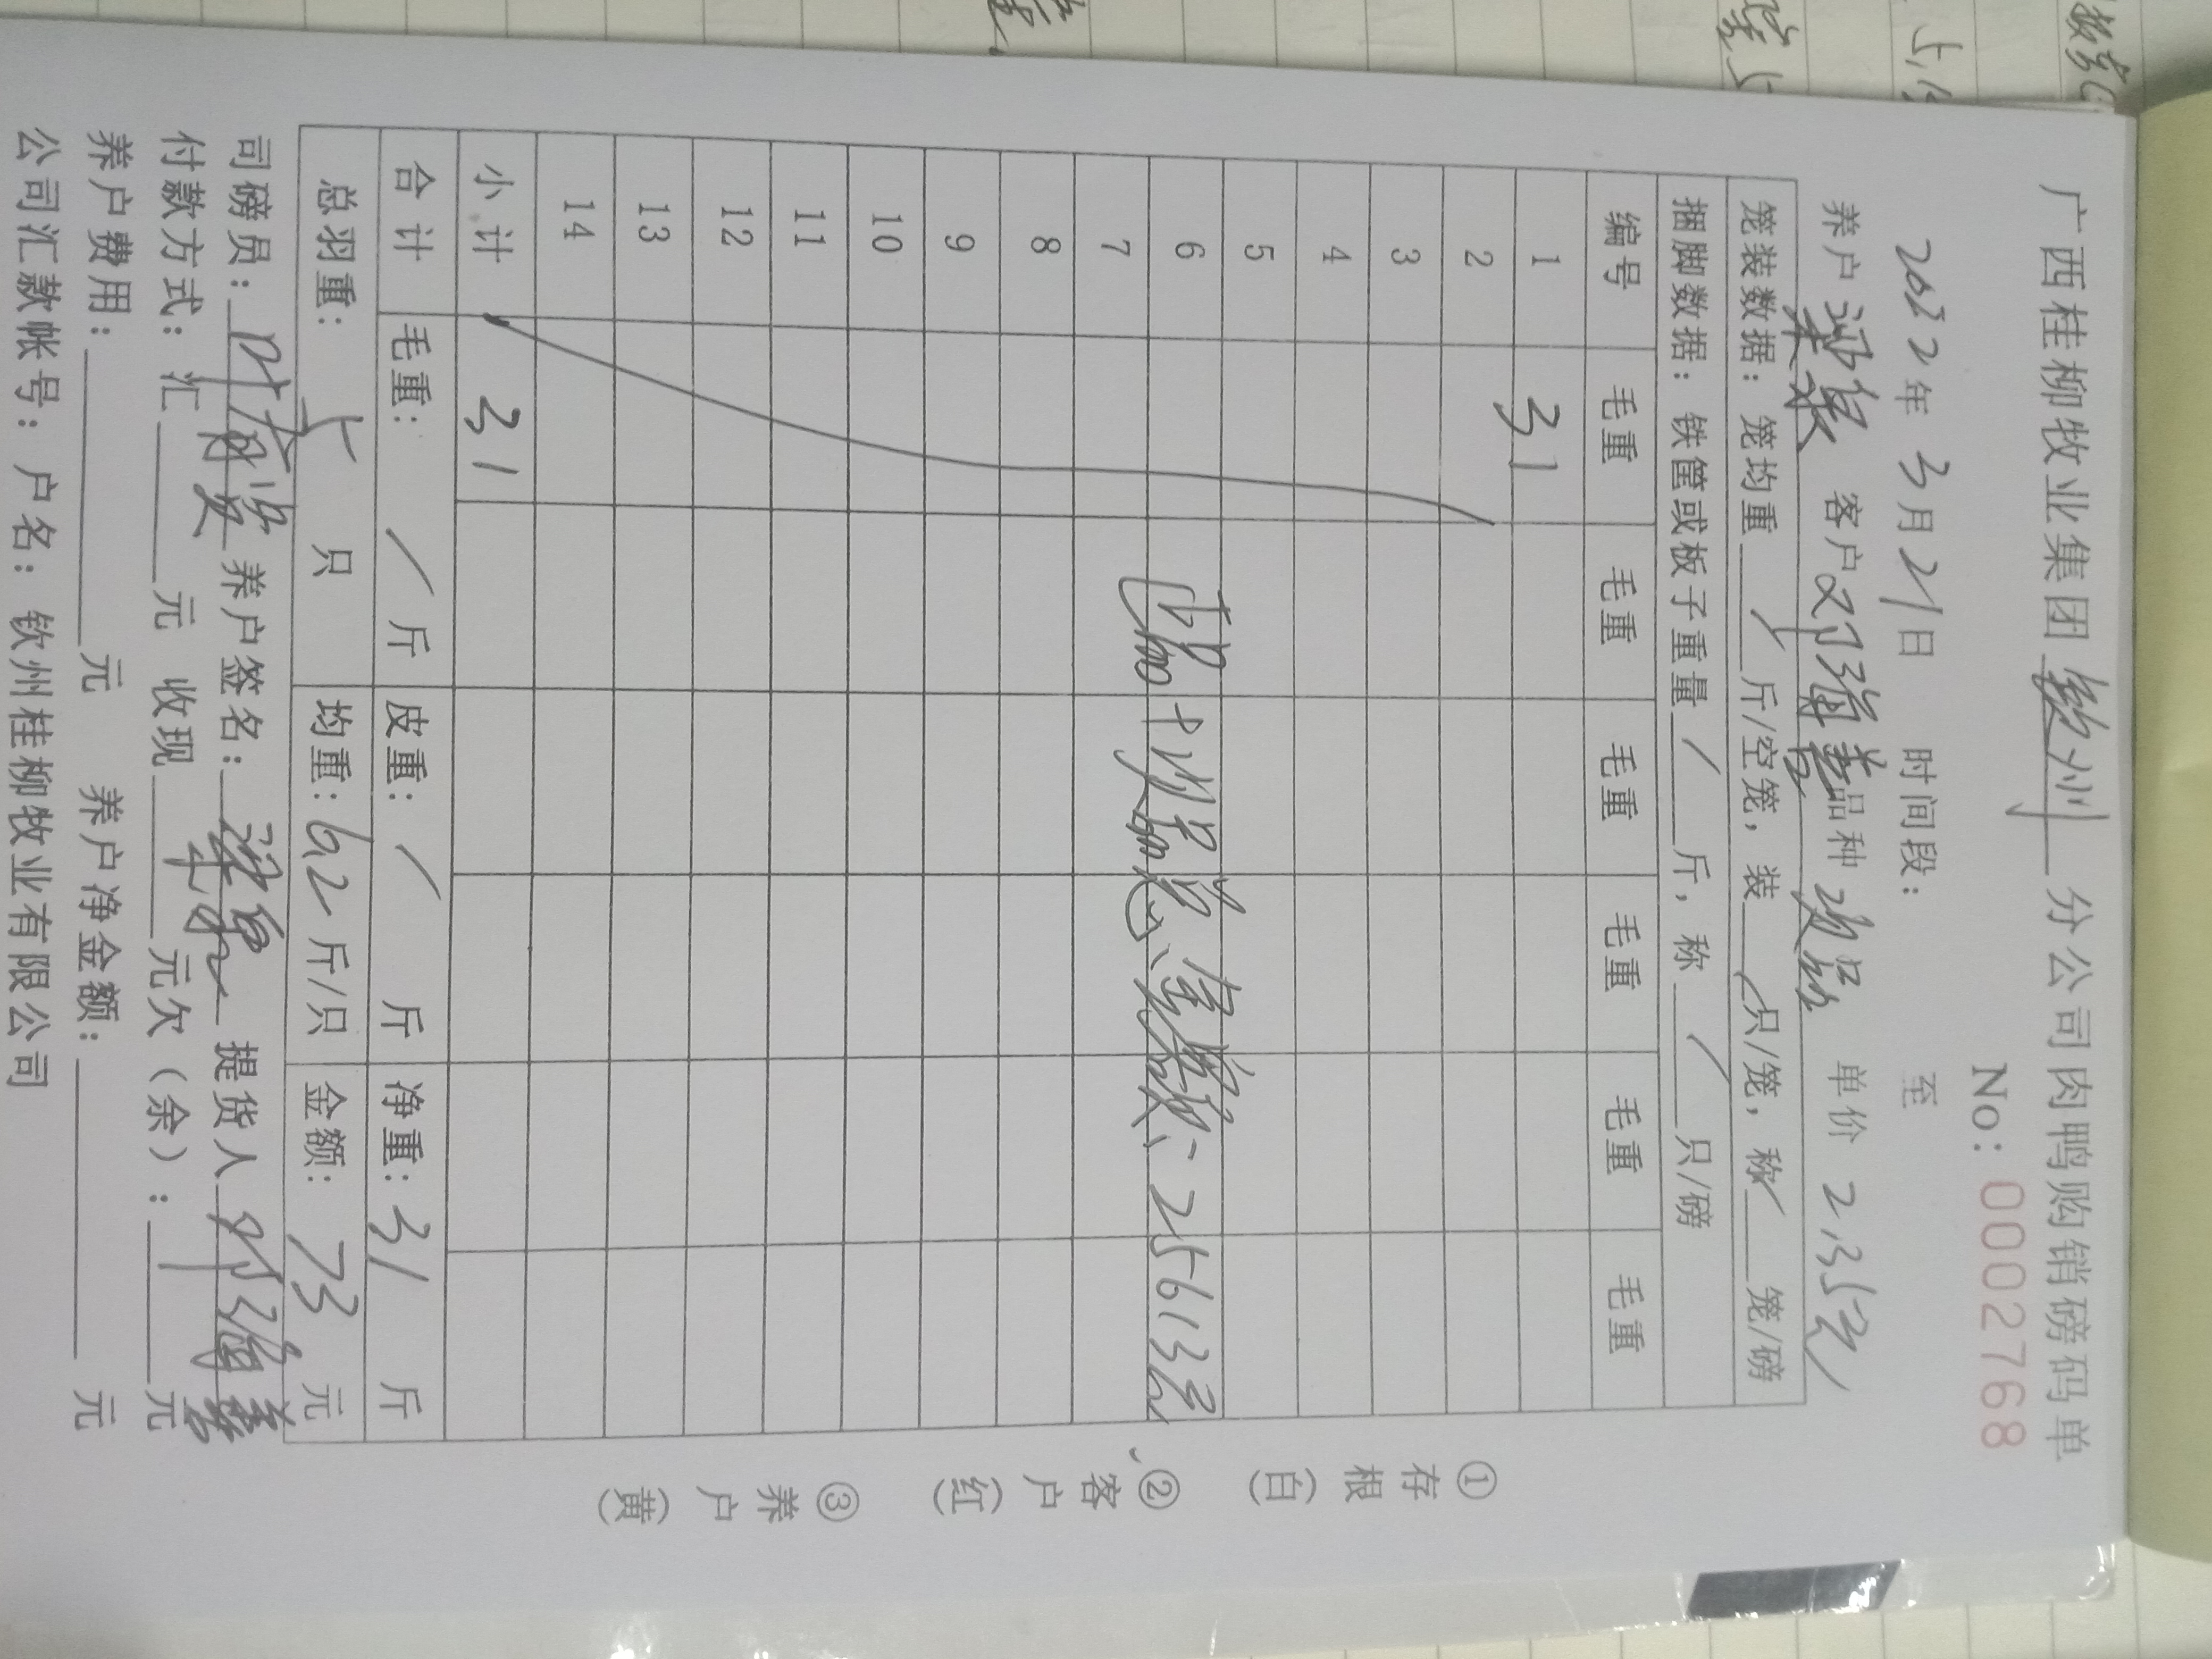 广西桂柳牧业集团 钦州 分公司肉鸭购销磅码单
No: 0002768
2022年3月21日 时间段: 至
养户 客户 邓海善 品种 次品 单价 2.35元
笼装数据: 笼均重 / 斤/空笼, 装 / 只/笼, 称 / 笼/磅
捆脚数据: 铁筐或板子重量 / 斤, 称 / 只/磅
编号 毛重 毛重 毛重 毛重 毛重 毛重
1 31
2
3
4
5
6 25613元
7
8
9
10
11
12
13
14
小计 31
合计 毛重: / 斤 皮重: / 斤 净重: 31 斤
总羽重: 5 只 均重: 6.2 斤/只 金额: 73 元
司磅员: 养户签名: 提货人 邓海善
付款方式: 汇 元 收现 元欠(余): 元
养户费用: 元 养户净金额: 元
公司汇款帐号: 户名: 钦州桂柳牧业有限公司
①存根(白) ②客户(红) ③养户(黄)